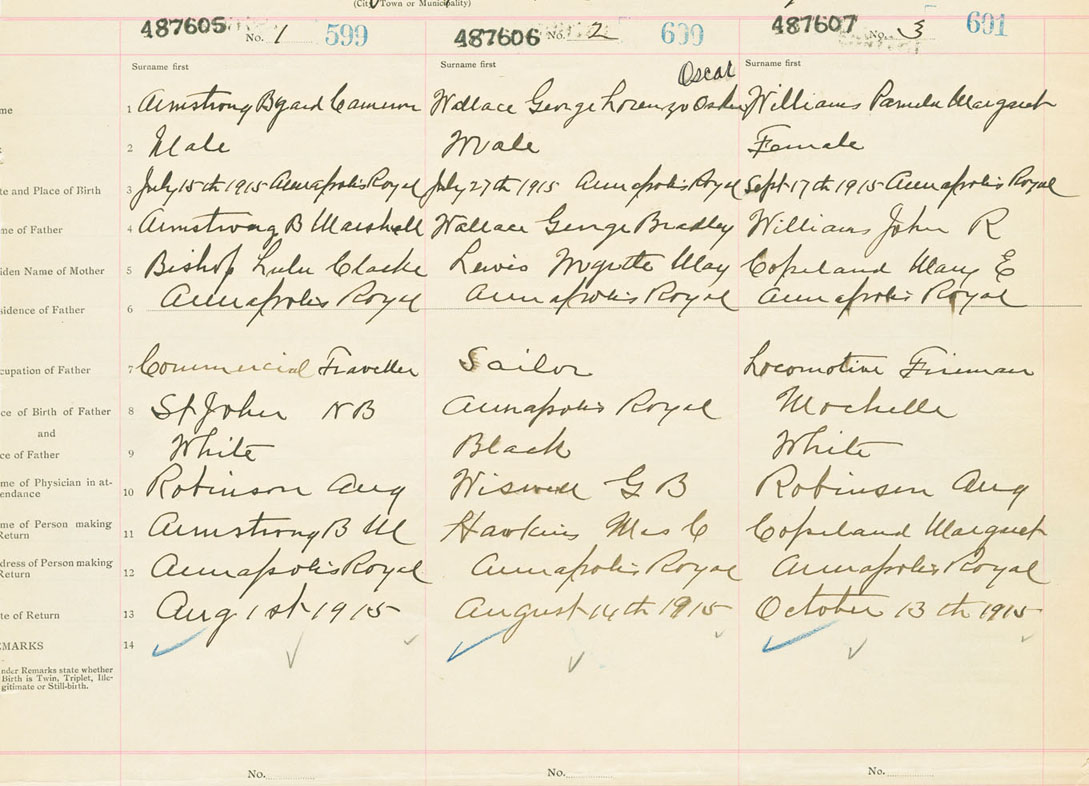 (City Town or Municipality)
487605 No. 1 599
487606 No. 2 600
487607 No. 3 601
Surname first Surname first Surname first
Oscar
me 1 Armstrong Byard Cameron Wallace George Lorenzo Williams Pamela Margaret
2 Male Male Female
te and Place of Birth 3 July 15th 1915 Annapolis Royal July 27th 1915 Annapolis Royal Sept 17th 1915 Annapolis Royal
me of Father 4 Armstrong B Marshall Wallace George Bradley Williams John R
iden Name of Mother 5 Bishop Lulu Clarke Lewis Myrtle May Copeland Mary E
sidence of Father 6 Annapolis Royal Annapolis Royal Annapolis Royal
cupation of Father 7 Commercial Traveller Sailor Locomotive Fireman
ce of Birth of Father 8 St John NB Annapolis Royal Mochelle
and
ce of Father 9 White Black White
me of Physician in at-
endance 10 Robinson Aug Wiswell G B Robinson Aug
me of Person making
Return 11 Armstrong B M Hawkins Mrs C Copeland Margaret
dress of Person making
Return 12 Annapolis Royal Annapolis Royal Annapolis Royal
te of Return 13 Aug 1st 1915 August 14th 1915 October 13th 1915
EMARKS 14
nder Remarks state whether
Birth is Twin, Triplet, Ille-
gitimate or Still-birth.
No. No. No.